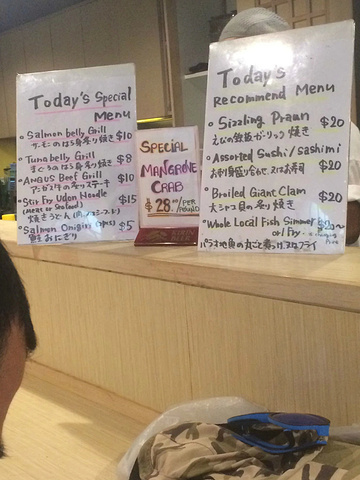 Today's Special
Menu
Salmon belly Grill $10
サーモンのはら身炙り焼き
Tuna belly Grill $8
まぐろのはら身炙り焼き
ANGUS Beef Grill $10
アンガス牛の炙りステーキ
Stir Fry Udon Noodle $15
(Meat or Seafood)
焼きうどん
Salmon Onigiri $5
鮭おにぎり
SPECIAL
MANGROVE
CRAB
$28.00/PER
POUND
Today's
Recommend Menu
Sizzling Prawn $20
えびの鉄板ガーリック焼き
Assorted Sushi/sashimi $20
お刺身盛り合わせ、又はお寿司
Broiled Giant Clam $20
大シャコ貝の炙り焼き
Whole Local Fish Simmer $20~
or/Fry.
パラオ地魚の丸ごと煮つけ、又はフライ